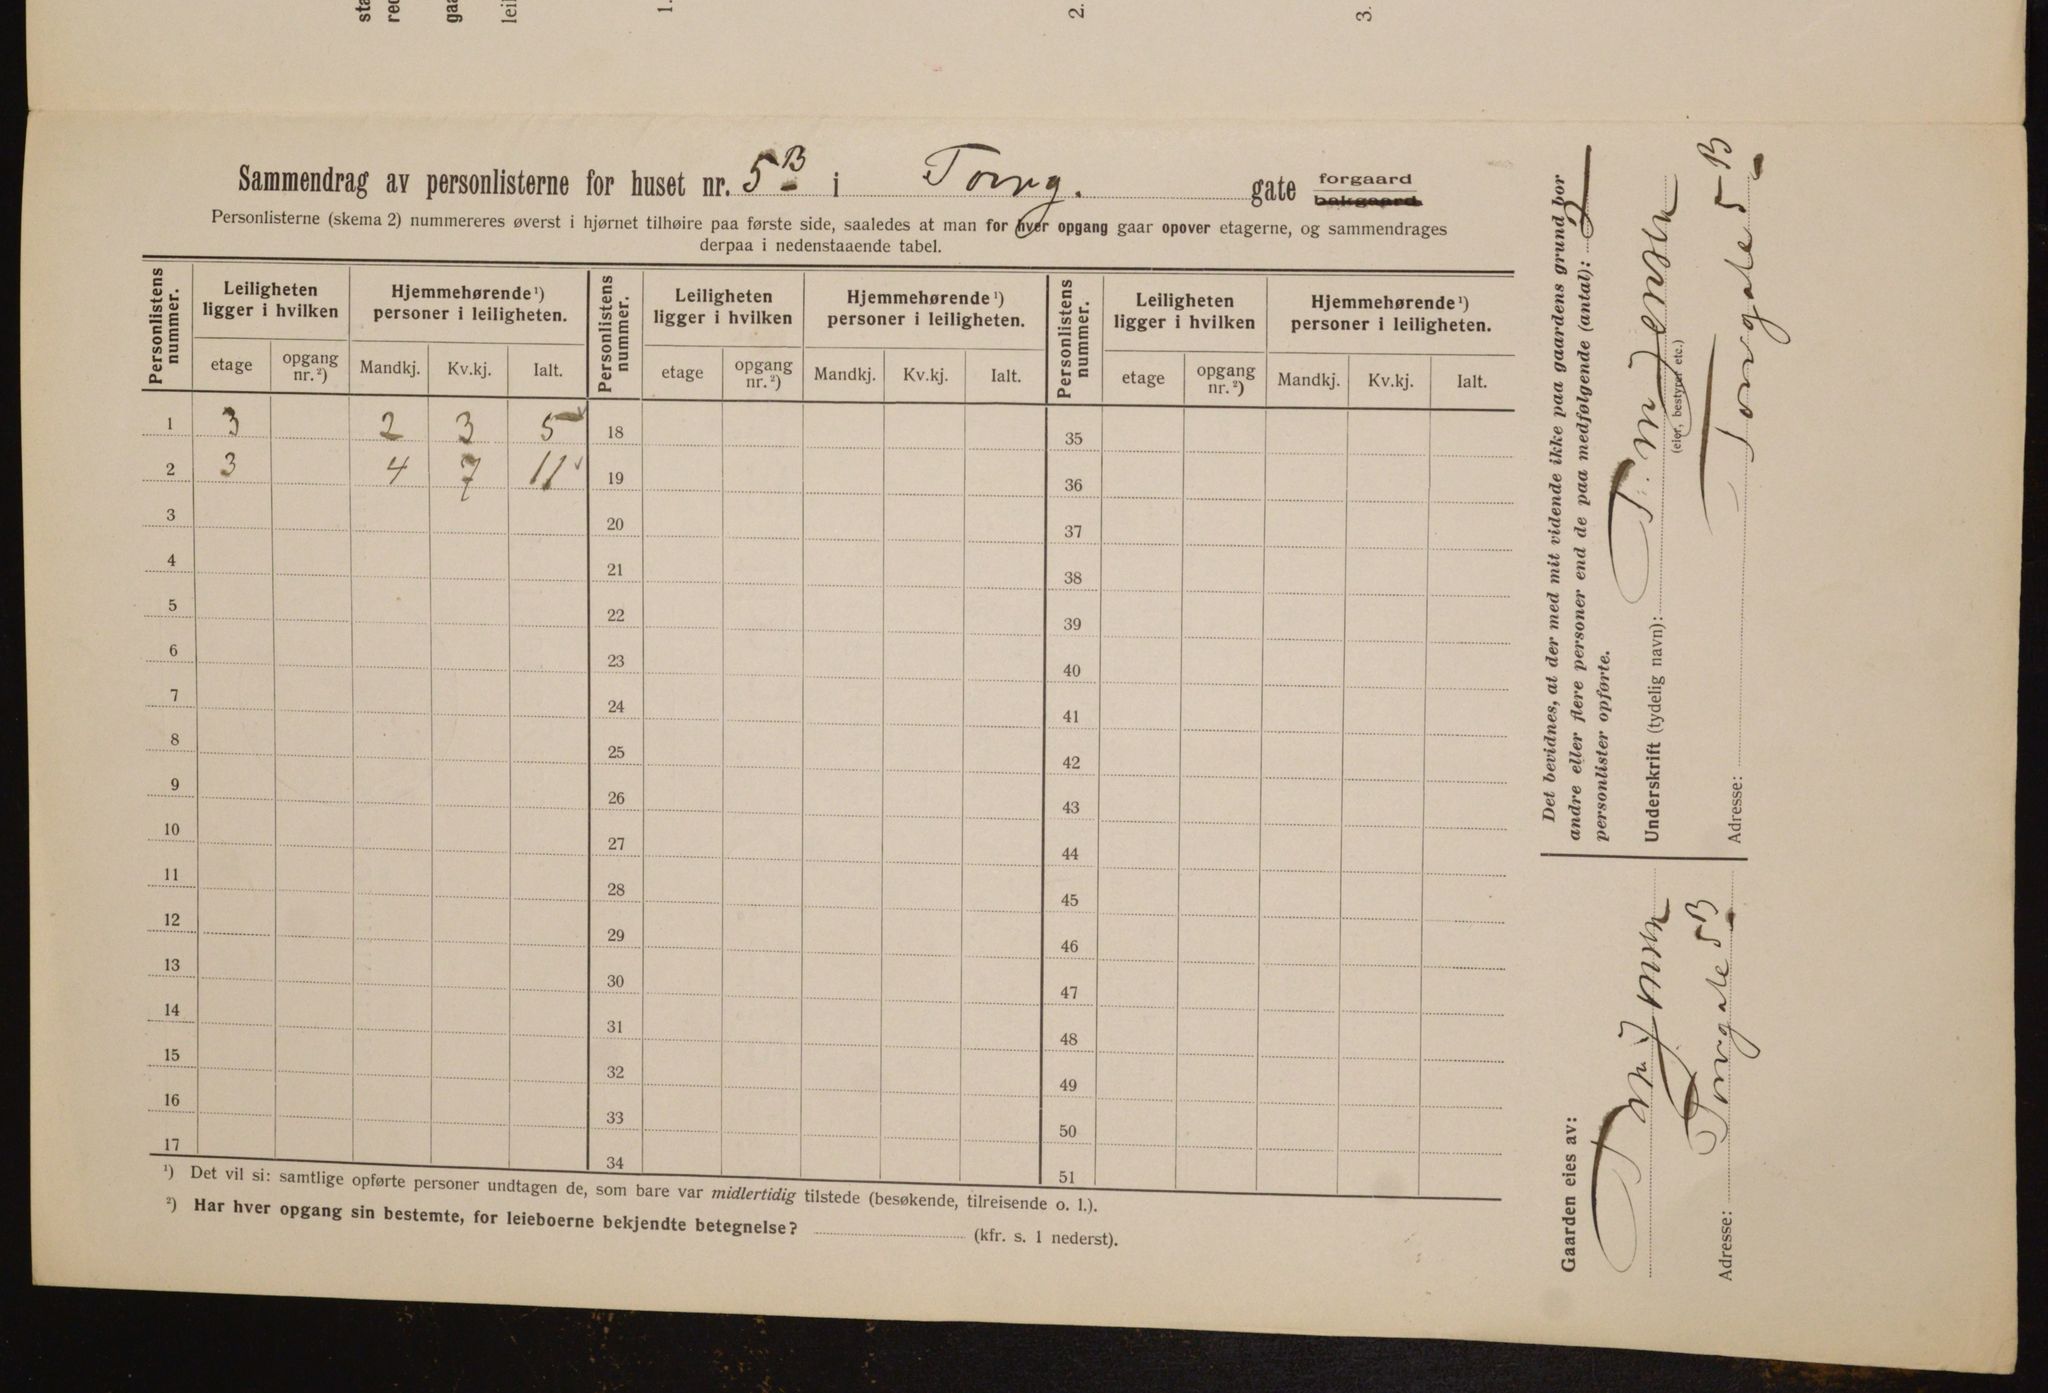 sta
red
gaa
leil
1.
2.
3.
Sammendrag av personlisterne for huset nr. 5 B i Torvg. gate forgaard bakgaard
Personlisterne (skema 2) nummereres øverst i hjørnet tilhøire paa første side, saaledes at man for hver opgang gaar opover etagerne, og sammendrages
derpaa i nedenstaaende tabel.
Personlistens nummer. Leiligheten ligger i hvilken Hjemmehørende ¹) personer i leiligheten. Personlistens nummer. Leiligheten ligger i hvilken Hjemmehørende ¹) personer i leiligheten. Personlistens nummer. Leiligheten ligger i hvilken Hjemmehørende ¹) personer i leiligheten.
etage opgang nr. ²) Mandkj. Kv.kj. Ialt. etage opgang nr. ²) Mandkj. Kv.kj. Ialt. etage opgang nr. ²) Mandkj. Kv.kj. Ialt.
1 3 2 3 5 18 35
2 3 4 7 11 19 36
3 20 37
4 21 38
5 22 39
6 23 40
7 24 41
8 25 42
9 26 43
10 27 44
11 28 45
12 29 46
13 30 47
14 31 48
15 32 49
16 33 50
17 34 51
¹) Det vil si: samtlige opførte personer undtagen de, som bare var midlertidig tilstede (besøkende, tilreisende o. l.).
²) Har hver opgang sin bestemte, for leieboerne bekjendte betegnelse? (kfr. s. 1 nederst).
Det bevidnes, at der med mit vidende ikke paa gaardens grund bor
andre eller flere personer end de paa medfølgende (antal): 2
personlister opførte.
Underskrift (tydelig navn): T. M. Jensen
(eier, bestyrer etc.)
Adresse: Torvgate 5 B
Gaarden eies av:
T. M. Jensen
Adresse: Torvgate 5 B